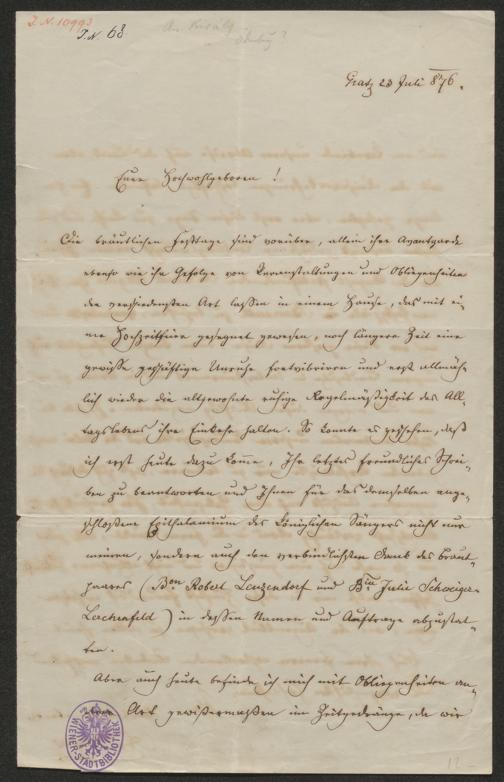 I. N. 10993
I.N. 68
An Király
Gratz 23 Juli 876.
Euer Hochwohlgeboren!
Die bräutlichen Festtage sind vorüber, allein ihre Avantgarde
ebenso wie ihr Gefolge von Veranstaltungen und Obliegenheiten
der verschiedensten Art lassen in einem Hause, das mit ei-
ner Hochzeitfeier gesegnet gewesen, noch längere Zeit eine
gewisse geschäftige Unruhe fortvibriren und erst allmäh-
lich wieder die altgewohnte ruhige Regelmäßigkeit des All-
tagslebens ihre Einkehr halten. So konnte es geschehen, daß
ich erst heute dazu komme, Ihr letztes freundliches Schrei-
ben zu beantworten und Ihnen für das demselben ange-
schloßene Epithalamium des königlichen Sängers nicht nur
meinen, sondern auch den verbindlichsten Dank des Braut-
paares (Bon Robert Lenzendorf und Bin Julie Schweiger-
Lerchenfeld) in dessen Namen und Auftrage abzustat-
ten.
Aber auch heute befinde ich mich mit Obliegenheiten an-
Art gewißermaßen im Zeitgedränge, da wir
WIENER-STADTBIBLIOTHEK
12 -